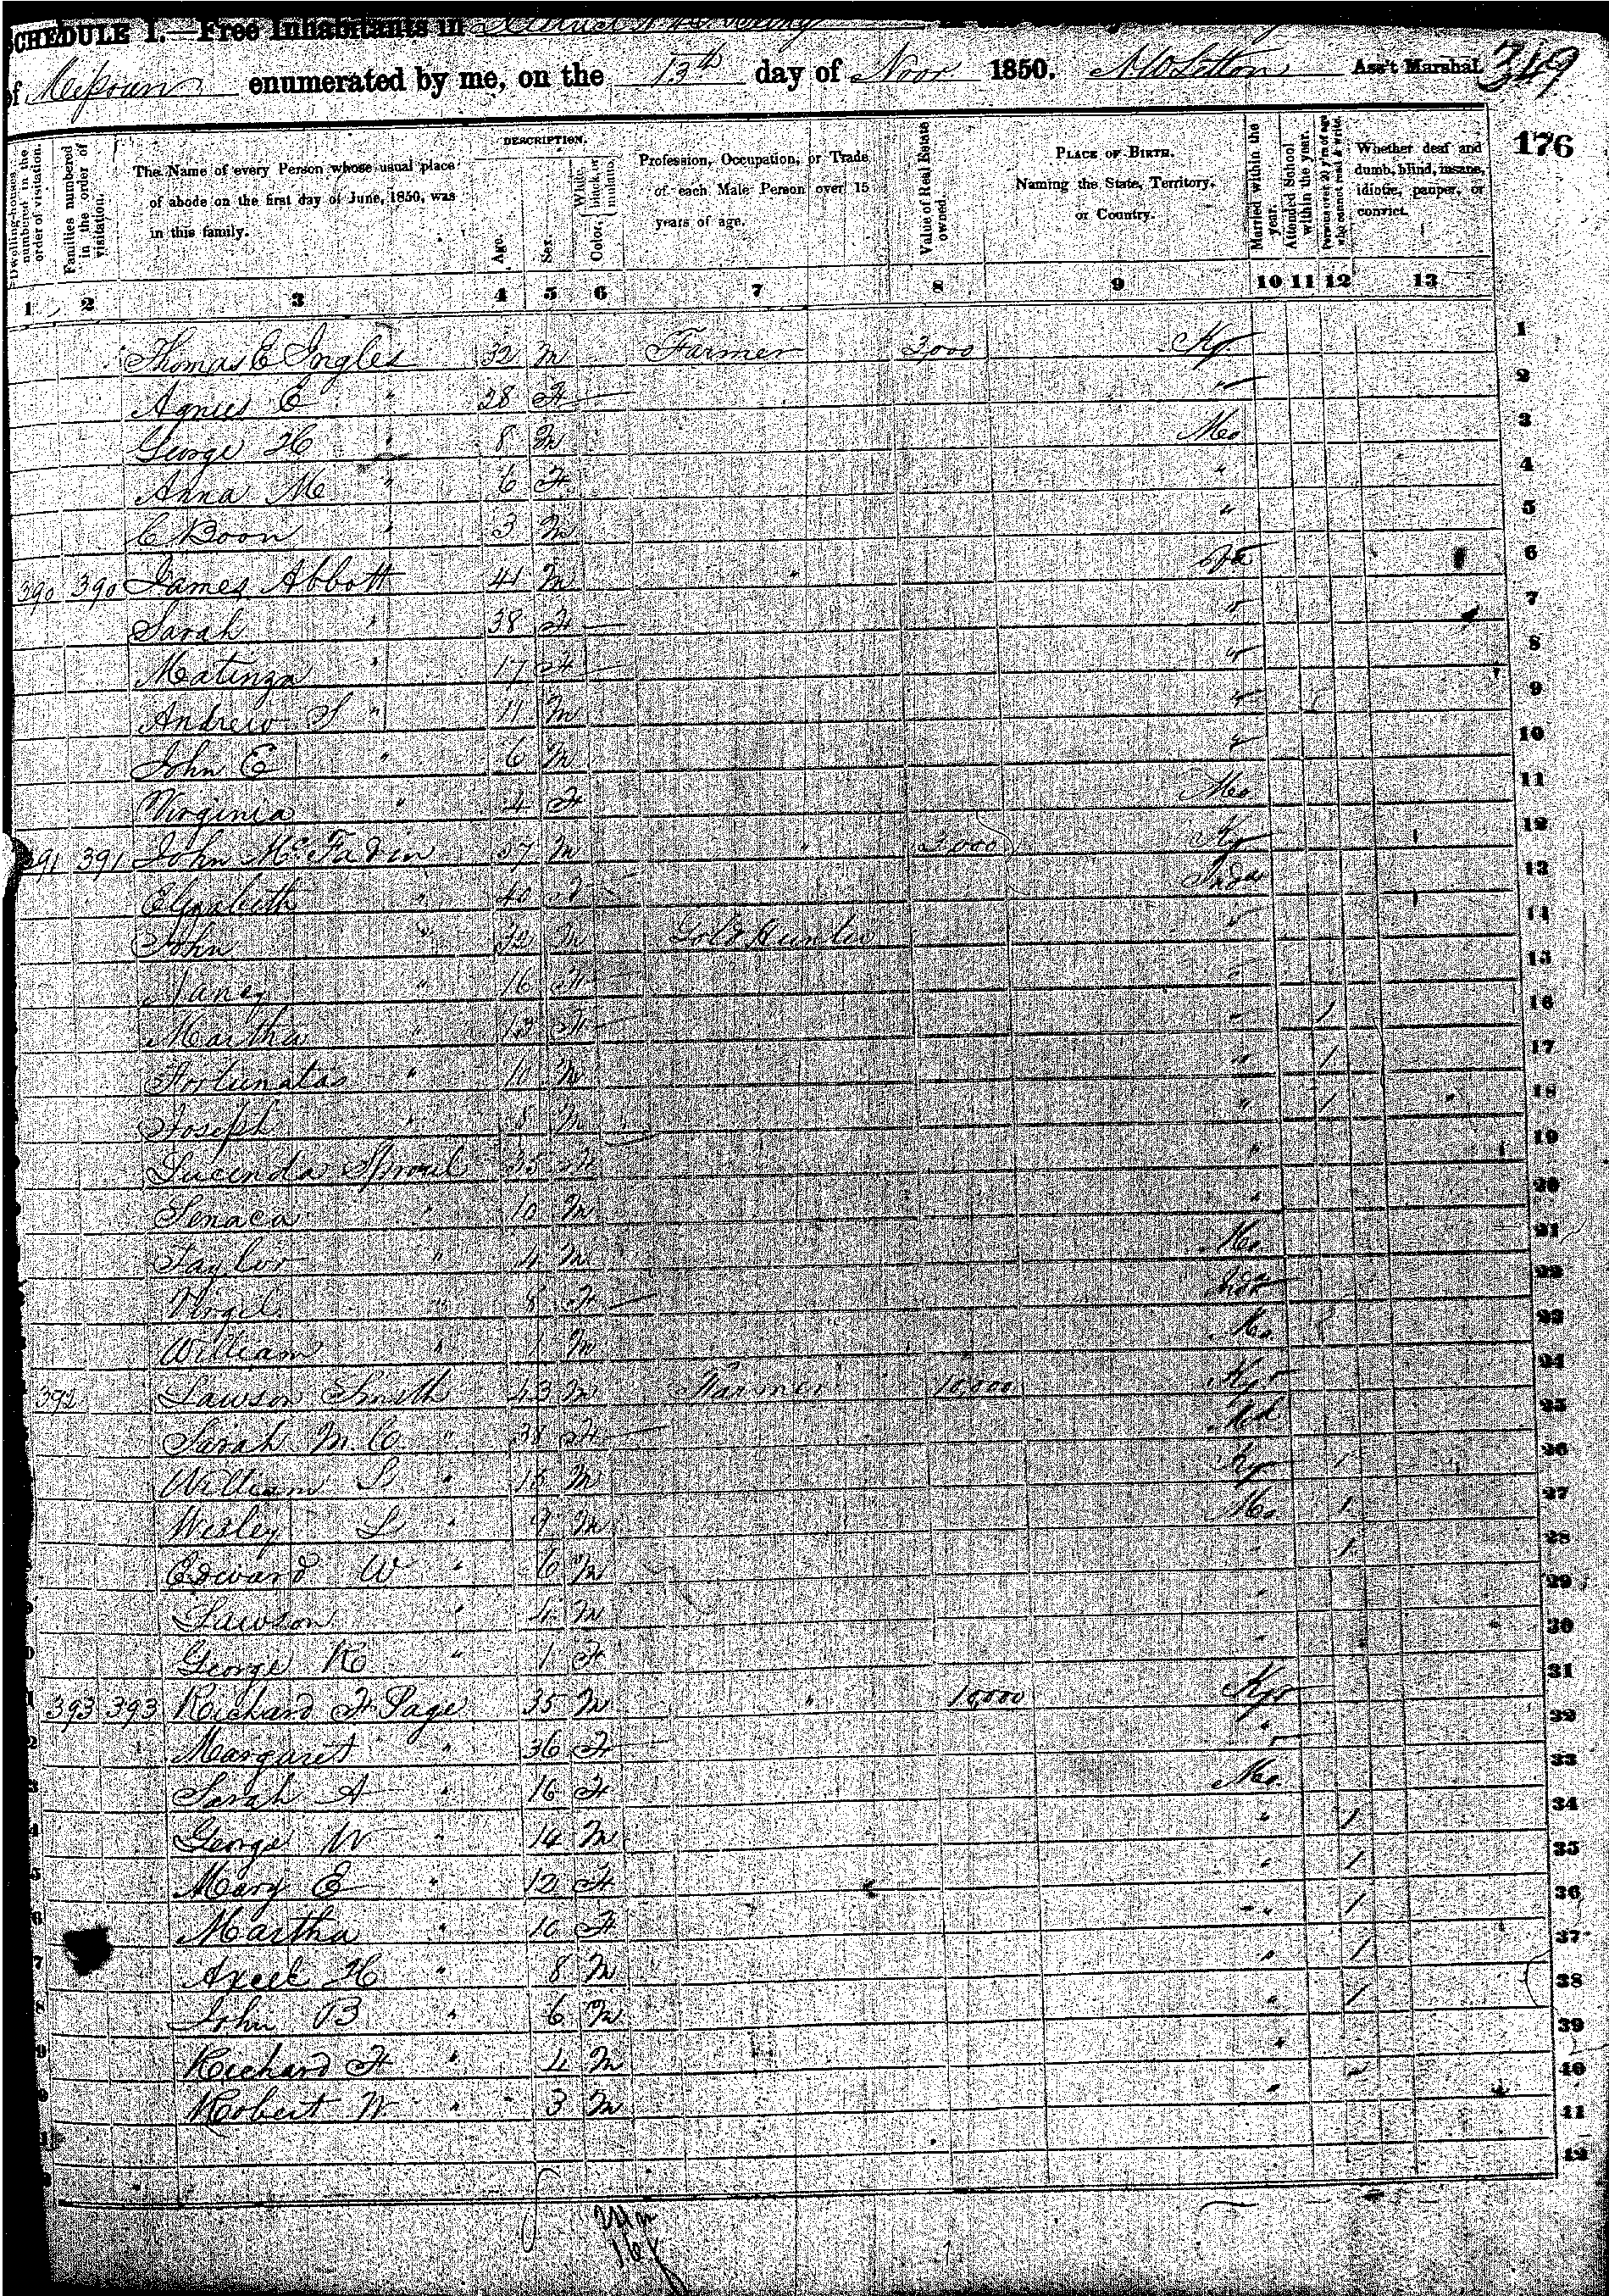 SCHEDULE I.—Free Inhabitants in
of Missouri enumerated by me, on the 13th day of Novr 1850. Ass't Marshal. 349
176
Dwelling-houses numbered in the order of visitation.
Families numbered in the order of visitation.
The Name of every Person whose usual place of abode on the first day of June, 1850, was in this family.
DESCRIPTION.
Age.
Sex.
Color, White, black or mulatto.
Profession, Occupation, or Trade of each Male Person over 15 years of age.
Value of Real Estate owned.
PLACE OF BIRTH. Naming the State, Territory, or Country.
Married within the year.
Attended School within the year.
Persons over 20 y'rs of age who cannot read & write.
Whether deaf and dumb, blind, insane, idiotic, pauper, or convict.
1 2 3 4 5 6 7 8 9 10 11 12 13
Thomas E Ingles 32 M Farmer 2,000 Ky. 1
Agnes E " 28 F " 2
George H " 8 M Mo 3
Anna M " 6 F " 4
C Boon " 3 M " 5
390 390 James Abbott 41 M " Va 6
Sarah " 38 F " 7
Matinza " 17 F " 8
Andrew S " 11 M " 9
John E " 6 M " 10
Virginia " 4 F Mo 11
391 391 John McFadin 57 M " 2,000 Ky 12
Elizabeth " 40 F Inda 13
John " 22 M Gold Hunter " 14
Nancy " 16 F " 15
Martha " 13 F " 1 16
Fortunatas " 11 M " 1 17
Joseph " 8 M " 1 18
Lucinda Sproul 35 F " 19
Senaca " 10 M " 20
Taylor " 4 M Mo. 21
Virgil " 8 F Inda 22
William " 1 M Mo 23
392 Lawson Smith 43 M Farmer 10,000 Ky 24
Sarah M. C. " 38 F Md 25
William S. " 15 M Ky 1 26
Wesley L " 9 M Mo 1 27
Edward W " 6 M " 1 28
Lawson " 4 M " 29
George R " 1 F " 30
393 393 Richard F Page 35 M " 10,000 Ky 31
Margaret " 36 F " 32
Sarah A " 16 F Mo. 33
George W " 14 M " 1 34
Mary E " 12 F " 1 35
Martha " 10 F " 1 36
Axeek H " 8 M " 1 37
John B " 6 M " 1 38
Richard F " 4 M " 39
Robert W " 3 M " 40
41
42